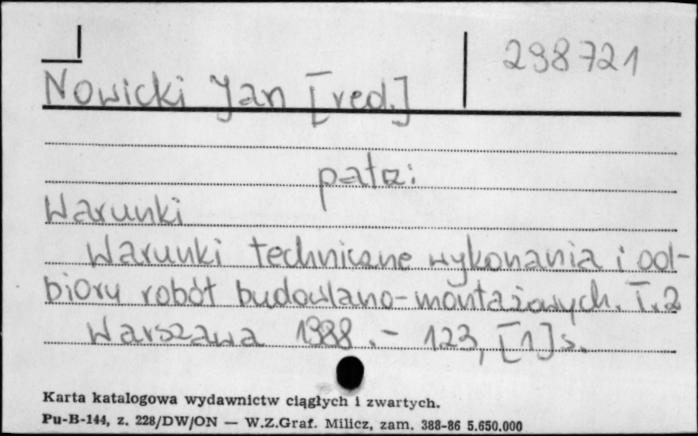 298721
Nowicki Jan [red.]
patrz:
Warunki
Warunki techniczne wykonania i od-
bioru robót budowlano-montażowych. T.2
Warszawa 1988. - 123, [1] s.
Karta katalogowa wydawnictw ciągłych i zwartych.
Pu-B-144, z. 228/DW/ON — W.Z.Graf. Milicz, zam. 388-86 5.650.000